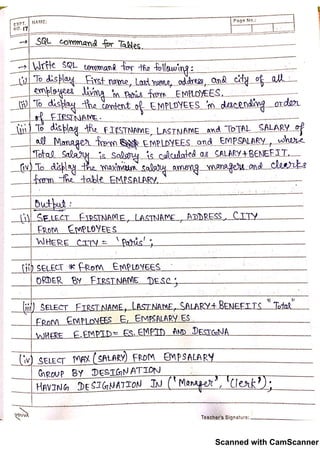 EXPT. NO. 17
NAME:
Page No.:
→ SQL command for Tables.
→ Write SQL command for the following:
(i) To display First name, Last name, address, and city of all
employees living in Paris from EMPLOYEES.
(ii) To display the content of EMPLOYEES in descending order
of FIRSTNAME.
(iii) To display the FIRSTNAME, LASTNAME and TOTAL SALARY of
all Manager from EMPLOYEES and EMPSALARY, where
Total Salary is Salary is calculated as SALARY+BENEFIT.
(iv) To display the maximum salary among managers and clerks
from the table EMPSALARY.
Output:
(i) SELECT FIRSTNAME, LASTNAME, ADDRESS, CITY
FROM EMPLOYEES
WHERE CITY = 'Paris';
(ii) SELECT * FROM EMPLOYEES
ORDER BY FIRSTNAME DESC;
(iii) SELECT FIRSTNAME, LASTNAME, SALARY+BENEFITS "Total"
FROM EMPLOYEES E, EMPSALARY ES
WHERE E.EMPID= ES.EMPID AND DESIGNA
(iv) SELECT MAX (SALARY) FROM EMPSALARY
GROUP BY DESIGNATION
HAVING DESIGNATION IN ('Manager', 'Clerk');
Teacher's Signature:
Scanned with CamScanner